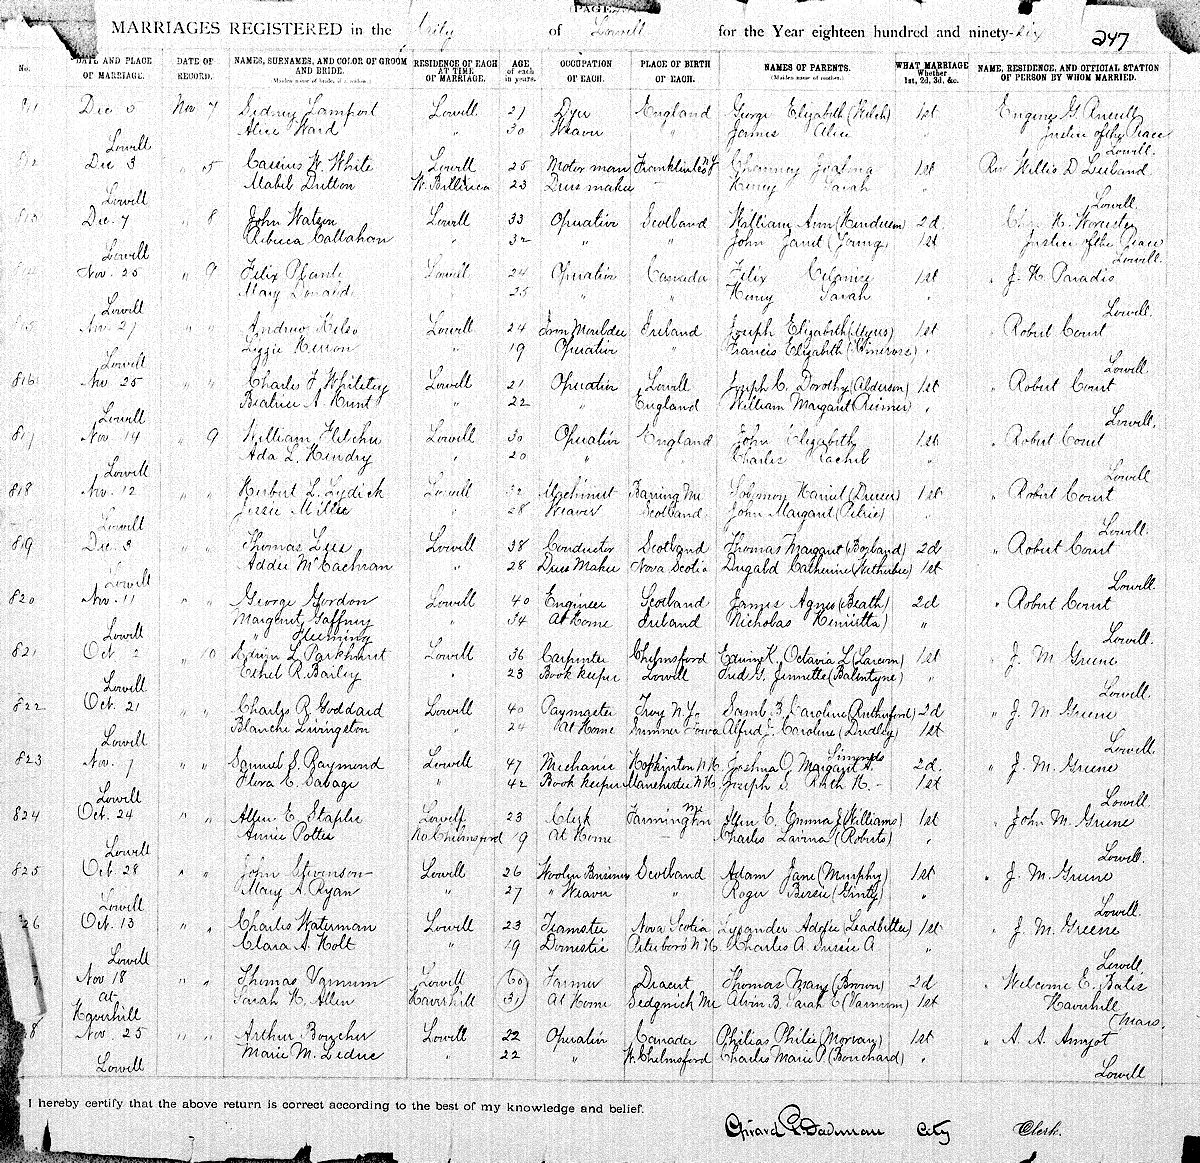 PAGE
MARRIAGES REGISTERED in the City of Lowell for the Year eighteen hundred and ninety-six 247
No. DATE AND PLACE OF MARRIAGE. DATE OF RECORD. NAMES, SURNAMES, AND COLOR OF GROOM AND BRIDE. (Maiden name of bride, if a widow.) RESIDENCE OF EACH AT TIME OF MARRIAGE. AGE of each in years. OCCUPATION OF EACH. PLACE OF BIRTH OF EACH. NAMES OF PARENTS. (Maiden name of mother.) WHAT MARRIAGE Whether 1st, 2d, 3d, &c. NAME, RESIDENCE, AND OFFICIAL STATION OF PERSON BY WHOM MARRIED.
Dec 5 Nov 7 Sidney Lamport Lowell 21 Dyer England George Elizabeth (Welch) 1st
Alice Ward " 30 Weaver " James Alice " Justice of the Peace
Lowell Lowell.
Dec 3 " 5 Cassius W. White Lowell 25 Motorman Franklin N.Y. 1st Rev Willis D Leland
Mabel Dutton W. Billerica 23 Dress maker Henry Sarah
Lowell Lowell.
Dec. 7 " 8 John Watson Lowell 33 Operative Scotland William Ann (Henderson) 2d
Rebecca Callahan " 32 " " John Janet (Young) 1st Justice of the Peace
Lowell Lowell.
Nov. 25 " 9 Felix Plante Lowell 24 Operative Canada Felix 1st " J. H. Paradis
Mary Donald " 25 " " Henry Sarah "
Lowell Lowell.
Nov. 27 " " Andrew Kelso Lowell 24 Iron Moulder Ireland Joseph Elizabeth (Myers) 1st " Robert Court
Lizzie Herron " 19 Operative " Francis Elizabeth "
Lowell Lowell.
816 Nov. 25 " " Charles F. Whiteley Lowell 21 Operative Lowell Joseph C. Dorothy (Alderson) 1st " Robert Court
Beatrice A. Hunt " 22 " England William Margaret "
Lowell Lowell.
817 Nov 14 " 9 William Fletcher Lowell 30 Operative England John Elizabeth 1st " Robert Court
Ada L. Hendry " 20 " " Charles Rachel "
Lowell Lowell
818 Nov. 12 " " Herbert L. Lydick Lowell 32 Machinist Baring Me Solomon Harriet 1st " Robert Court
Jessie Miller " 28 Weaver Scotland. John Margaret (Petrie) "
Lowell Lowell.
819 Dec. 3 " " Thomas Lees Lowell 38 Conductor Scotland Thomas Margaret (Boyland) 2d " Robert Court
Addie McEachran " 28 Dress Maker Nova Scotia Dugald Catherine (Wetherbee) 1st
Lowell Lowell.
820 Nov. 11 " " George Gordon Lowell 40 Engineer Scotland James Agnes (Beath) 2d " Robert Court
Margaret Gaffney " 34 At Home Ireland Nicholas Henrietta) "
Lowell " Fleming Lowell.
821 Oct 2 " 10 Edwin L. Parkhurst Lowell 36 Carpenter Chelmsford Edwin K. Octavia L (Larcom) 1st " J. M Greene
Ethel R. Bailey " 23 Book keeper Lowell Fred G. Jennette (Ballentyne) "
Lowell Lowell.
822 Oct. 21 " " Charles R. Goddard Lowell 40 Paymaster Troy N.Y. Saml. B. Caroline (Rutherford) 2d " J. M Greene
Blanche Livingston " 24 At Home Sumner Iowa Alfred J. Caroline (Dudley) 1st
Lowell Lowell.
823 Nov. 7 " " Samuel S. Raymond Lowell 47 Mechanic Hopkinton N.H. Joshua O. Margaret A. Simonds 2d. " J. M Greene
Flora E. Savage " 42 Book keeper Manchester N.H. Joseph S. Ruth H. - 1st
Lowell Lowell.
824 Oct. 24 " " Allen E. Staples Lowell 23 Clerk Farmington Me Allen C. Emma J (Williams) 1st " John M. Greene
Annie Potter No. Chelmsford 19 At Home — Charles Lavina (Roberts) "
Lowell Lowell.
825 Oct. 28 " " John Stevenson Lowell 26 Woolen Business Scotland Adam Jane (Murphy) 1st " J. M. Greene
Mary A. Ryan " 27 " Weaver " Roger Bessie (Ginty) "
Lowell Lowell.
26 Oct. 13 " " Charles Waterman Lowell 23 Teamster Nova Scotia Lysander Addie (Leadbetter) 1st " J. M. Greene
Clara A. Holt " 19 Domestic Peterboro N.H. Charles A. Susie A "
Lowell Lowell.
7 Nov 18 " " Thomas Varnum Lowell 60 Farmer Dracut Thomas Mary (Brown) 2d " Welcome E. Bates
at Sarah H. Allen Haverhill 31 At Home Sedgwick Me Alvin B. Sarah E (Varnum) 1st Haverhill
Haverhill Mass.
8 Nov. 25 " " Arthur Boucher Lowell 22 Operative Canada Philias Philie (Morvan) 1st " A. A. Amyot
Marie M. Leduc " 22 " W. Chelmsford Charles Marie P (Bouchard) "
Lowell Lowell
I hereby certify that the above return is correct according to the best of my knowledge and belief.
Girard P. Dadman City Clerk.